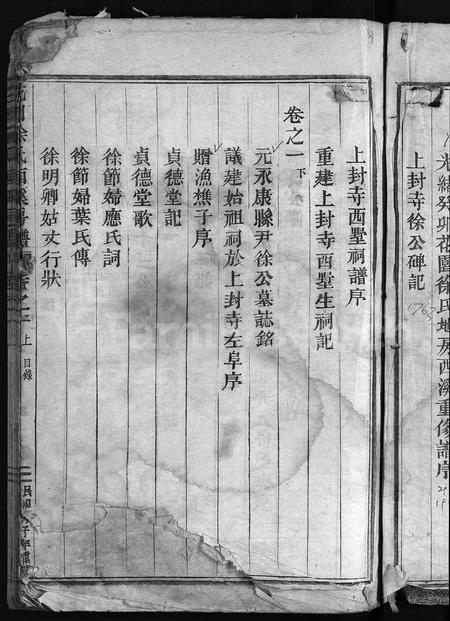 光緒癸卯花園徐氏地房西溪重修譜序
上封寺徐公碑記
1763
上封寺西墅祠譜序
重建上封寺西墅生祠記
卷之一下
元永康縣尹徐公墓誌銘
議建始祖祠於上封寺左阜序
贈漁樵子序
貞德堂記
貞德堂歌
徐節婦應氏詞
徐節婦葉氏傳
徐明卿姑丈行狀
上 目錄